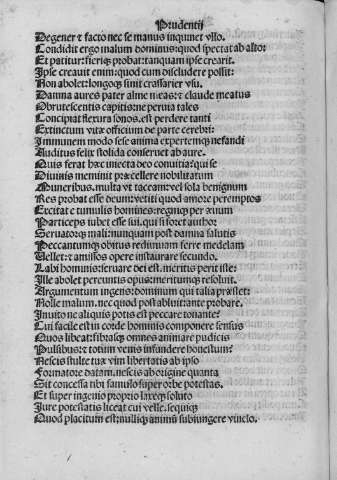 Prudentij
Degener & facto nec se manus inquinet vllo.
Condidit ergo malum dominus: quod spectat ab alto:
Et patitur: fieriqz probat: tanquam ipse crearit.
Ipse creauit enim: quod cum discludere possit:
Non abolet: longoqz sinit crassarier vsu.
Damna aures pater alme meas: & claude meatus
Obrutescentis capitis: ne peruia tales
Concipiat flexura sonos. est perdere tanti
Extinctum vitæ officium de parte cerebri:
Immunem modo sese anima expertemqz nefandi
Auditus felix stolida conseruet ab aure.
Quis ferat hæc inuecta deo conuitia? qui se
Diuinis meminit præcellere nobilitatum
Muneribus. multa vt taceam: vel sola benignum
Res probat esse deum: vetiti quod amore peremptos
Excitat e tumulis homines: regniqz per æuum
Participes iubet esse sui. qui si foret author
Seruatorqz mali: nunquam post damna salutis
Peccantumqz obitus rediuiuam ferre medelam
Uellet: & amissos opere instaurare secundo.
Labi hominis: seruare dei est. meritis perit iste:
Ille abolet pereuntis opus: meritumqz resoluit.
Argumentum ingens: dominum qui talia præstet:
Nolle malum. nec quod post abluit: ante probare.
Inuito ne aliquis potis est peccare tonante?
Cui facile est in corde hominis componere sensus
Quos libeat: fibrasqz omnes animare pudicis
Pulsibus: & totum venis infundere honestum?
Nescis stulte tuæ vim libertatis ab ipso
Formatore datam. nescis ab origine quanta
Sit concessa tibi famulo super orbe potestas.
Et super ingenio proprio laxeqz soluto
Iure potestatis liceat cui velle. sequiqz
Quod placitum est: nulliqz animũ subiungere vinclo.